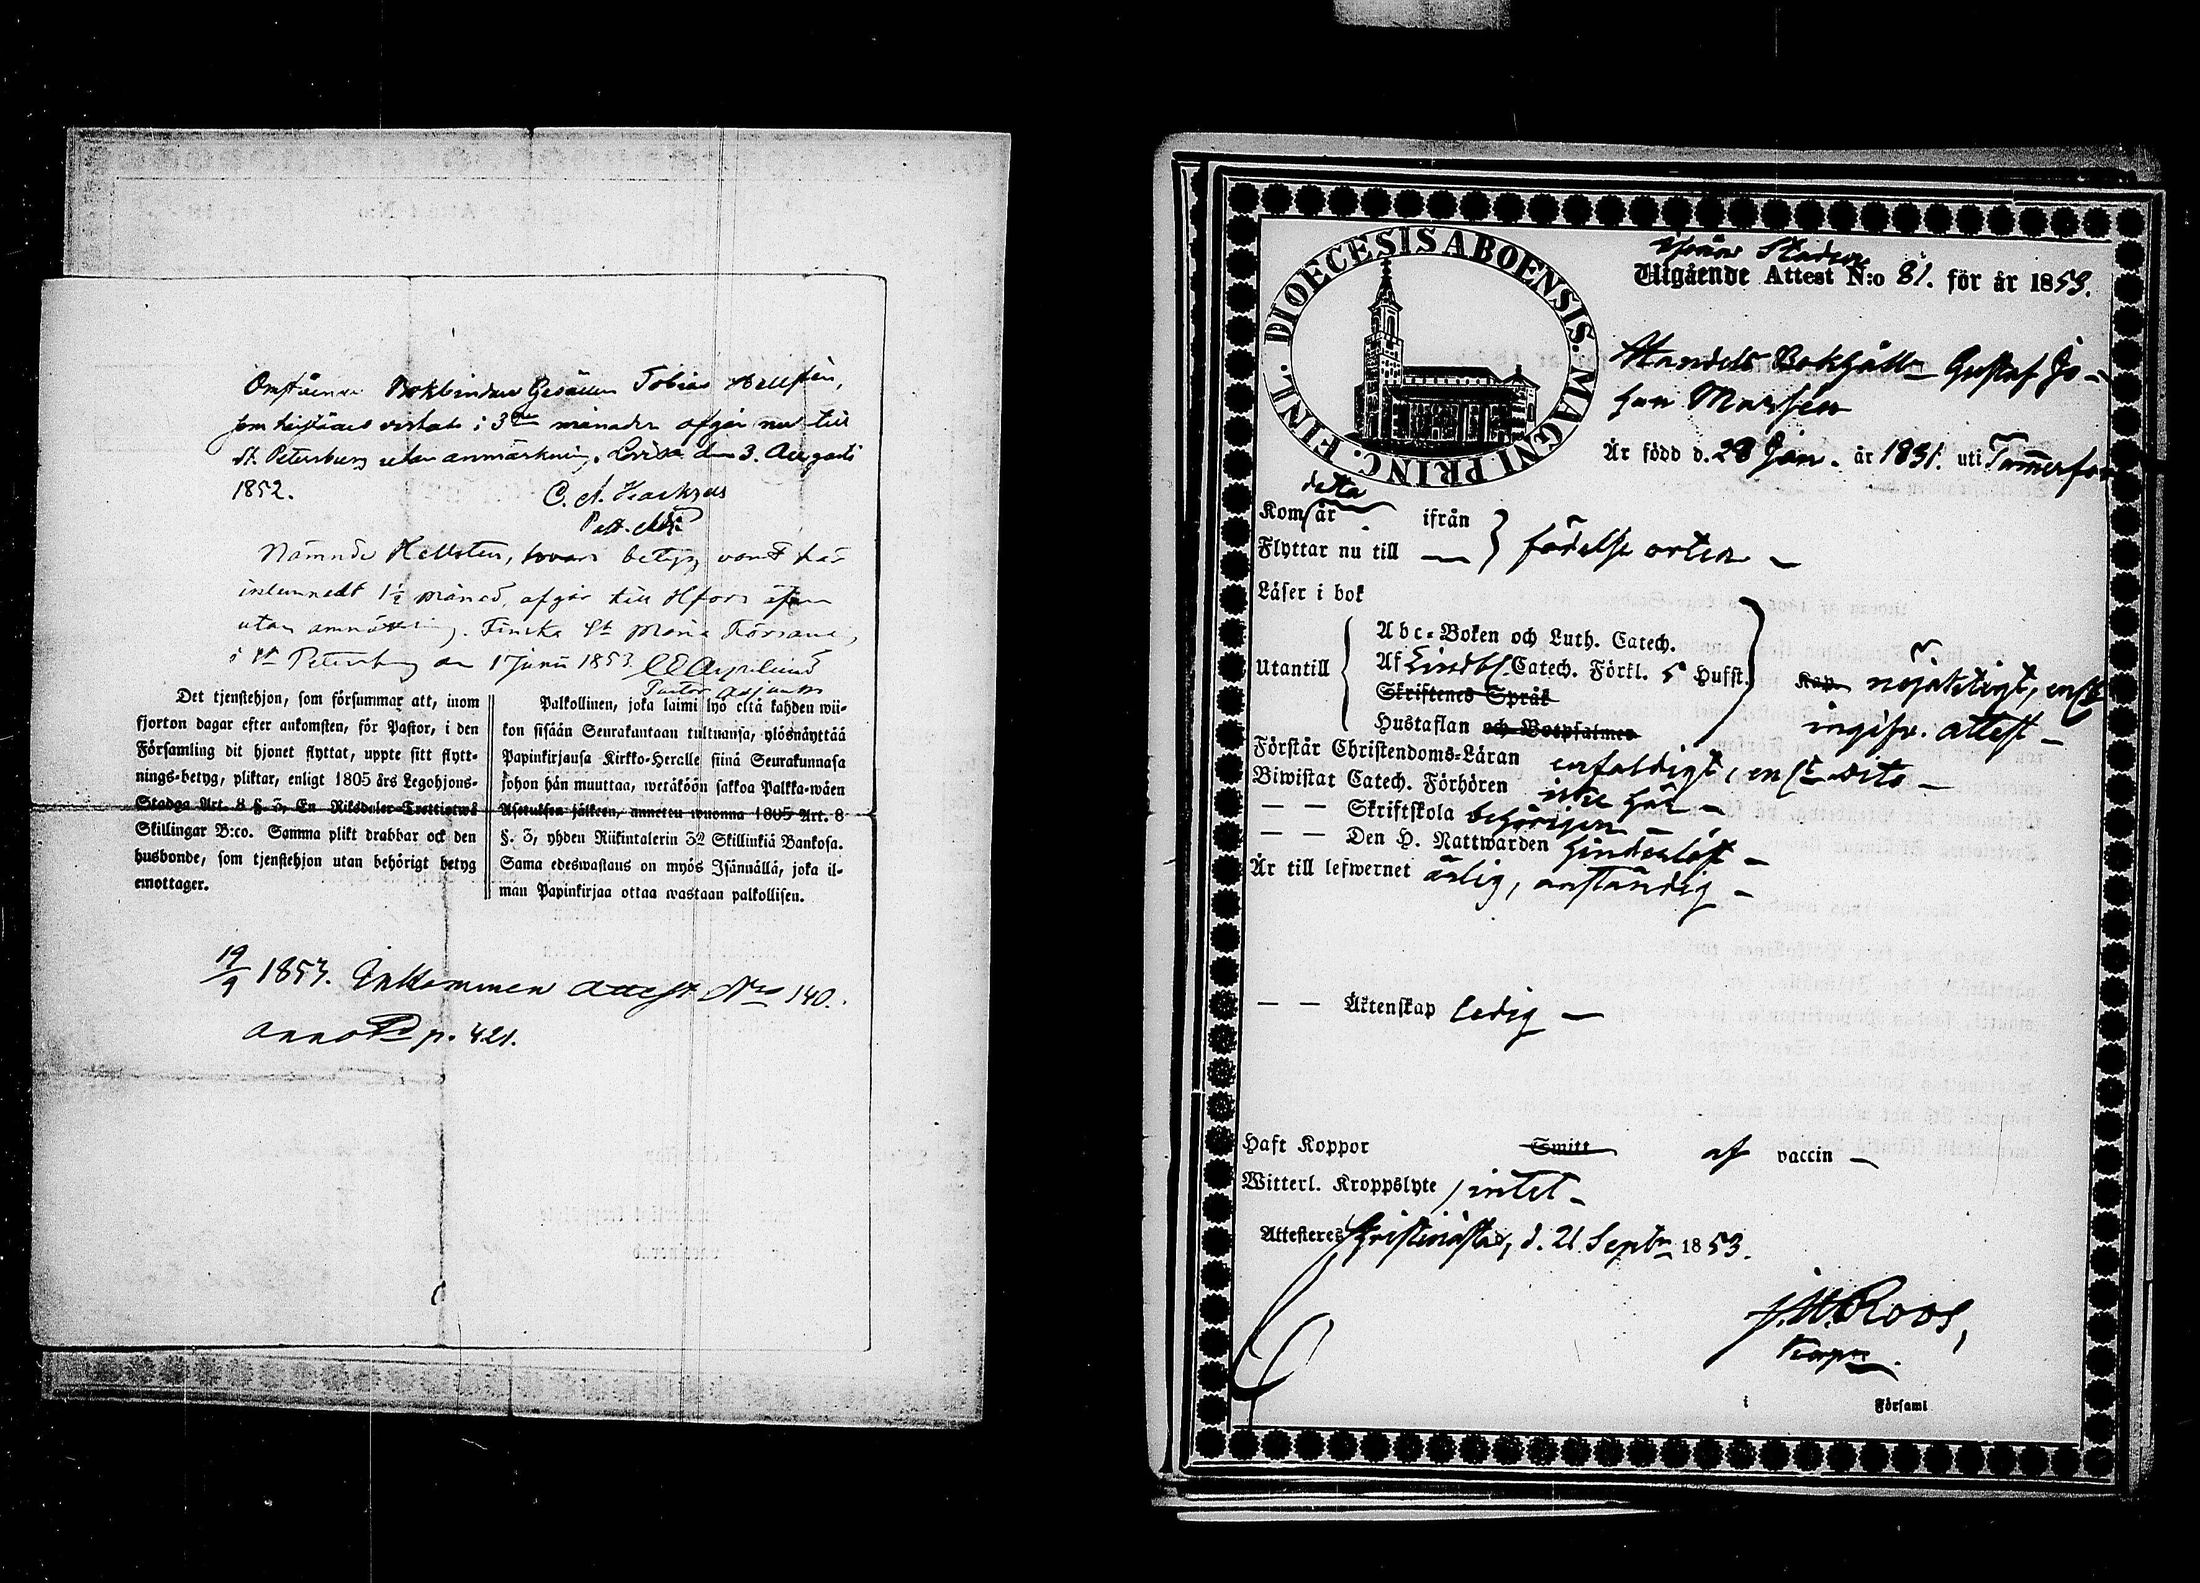 Omstående Bokbindare Gesällen Tobias Hellsten,
som härstädes vistats i 3ne månader afgår nu till
St. Petersburg utan anmärkning. Lovisa den 3. Augusti
1852.
C. A.
Nämnde Hellsten, hvars betyg varit här
inlemnadt 1½ månad, afgår till Hfors äfven
utan anmärkning. Finska St Maria Församl,
i St Petersburg den 1 Juni 1853.
Pastor Adjunkt
Det tjenstehjon, som försummar att, inom
fjorton dagar efter ankomsten, för Pastor, i den
Församling dit hjonet flyttat, uppte sitt flytt-
nings-betyg, pliktar, enligt 1805 års Legohjons-
Stadga Art. 8 §. 3, En Riksdaler Trettiotwå
Skillingar B:co. Samma plikt drabbar ock den
husbonde, som tjenstehjon utan behörigt betyg
emottager.
Palkollinen, joka laimi lyö että kahden wii-
kon sisään Seurakuntaan tultuansa, ylösnäyttää
Papinkirjansa Kirkko-Heralle siinä Seurakunnasa
johon hän muuttaa, wetäköön sakkoa Palkka-wäen
Asetuksen jälkeen, annettu wuonna 1805 Art. 8
§. 3, yhden Riikintalerin 32 Skillinkiä Bankosa.
Sama edeswastaus on myös Isännällä, joka il-
man Papinkirjaa ottaa wastaan palkollisen.
19/9 1853. Inkommen attest No 140.
p. 421.
DIOECESIS ABOENSIS. MAGNI PRINC. FINL.
Staden
Utgående Attest N:o 81. för år 1853.
Handels Bokhålln Gustaf Jo-
han
Är född d. 28 Jan. år 1831. uti Tammerfors
detta
Kom år ifrån
Flyttar nu till — } födelse orten —
Läser i bok
Utantill
Abc-Boken och Luth. Catech.
Af Lindbl. Catech. Förkl. 5 Hufst.
Skriftenes Språk
Hustaflan och Botpsalmer
Kap. nöjaktigt, enl
ingifv. attest —
Förstår Christendoms-Läran enfaldigt, enl dito —
Biwistat Catech. Förhören icke här —
— — Skriftskola behörigen —
— — Den H. Nattwarden hinderlöst —
Är till lefwernet ärlig, anständig —
— — Äktenskap ledig —
Haft Koppor Smitt af vaccin —
Witterl. Kroppslyte intet —
Attesteres Christinestad, d. 21 Septbr 1853.
Roos,
i Församl